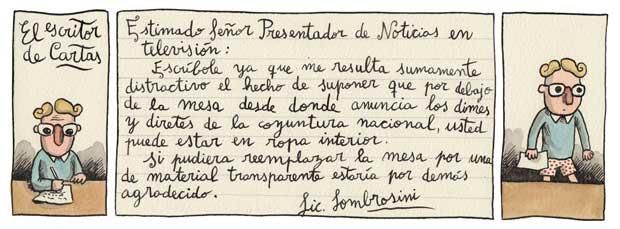 El escritor
de Cartas
Estimado Señor Presentador de Noticias en
televisión:
Escríbole ya que me resulta sumamente
distractivo el hecho de suponer que por debajo
de la mesa desde donde anuncia los dimes
y diretes de la coyuntura nacional, usted
puede estar en ropa interior.
Si pudiera reemplazar la mesa por una
de material transparente estaría por demás
agradecido.
Lic. Sombrosini